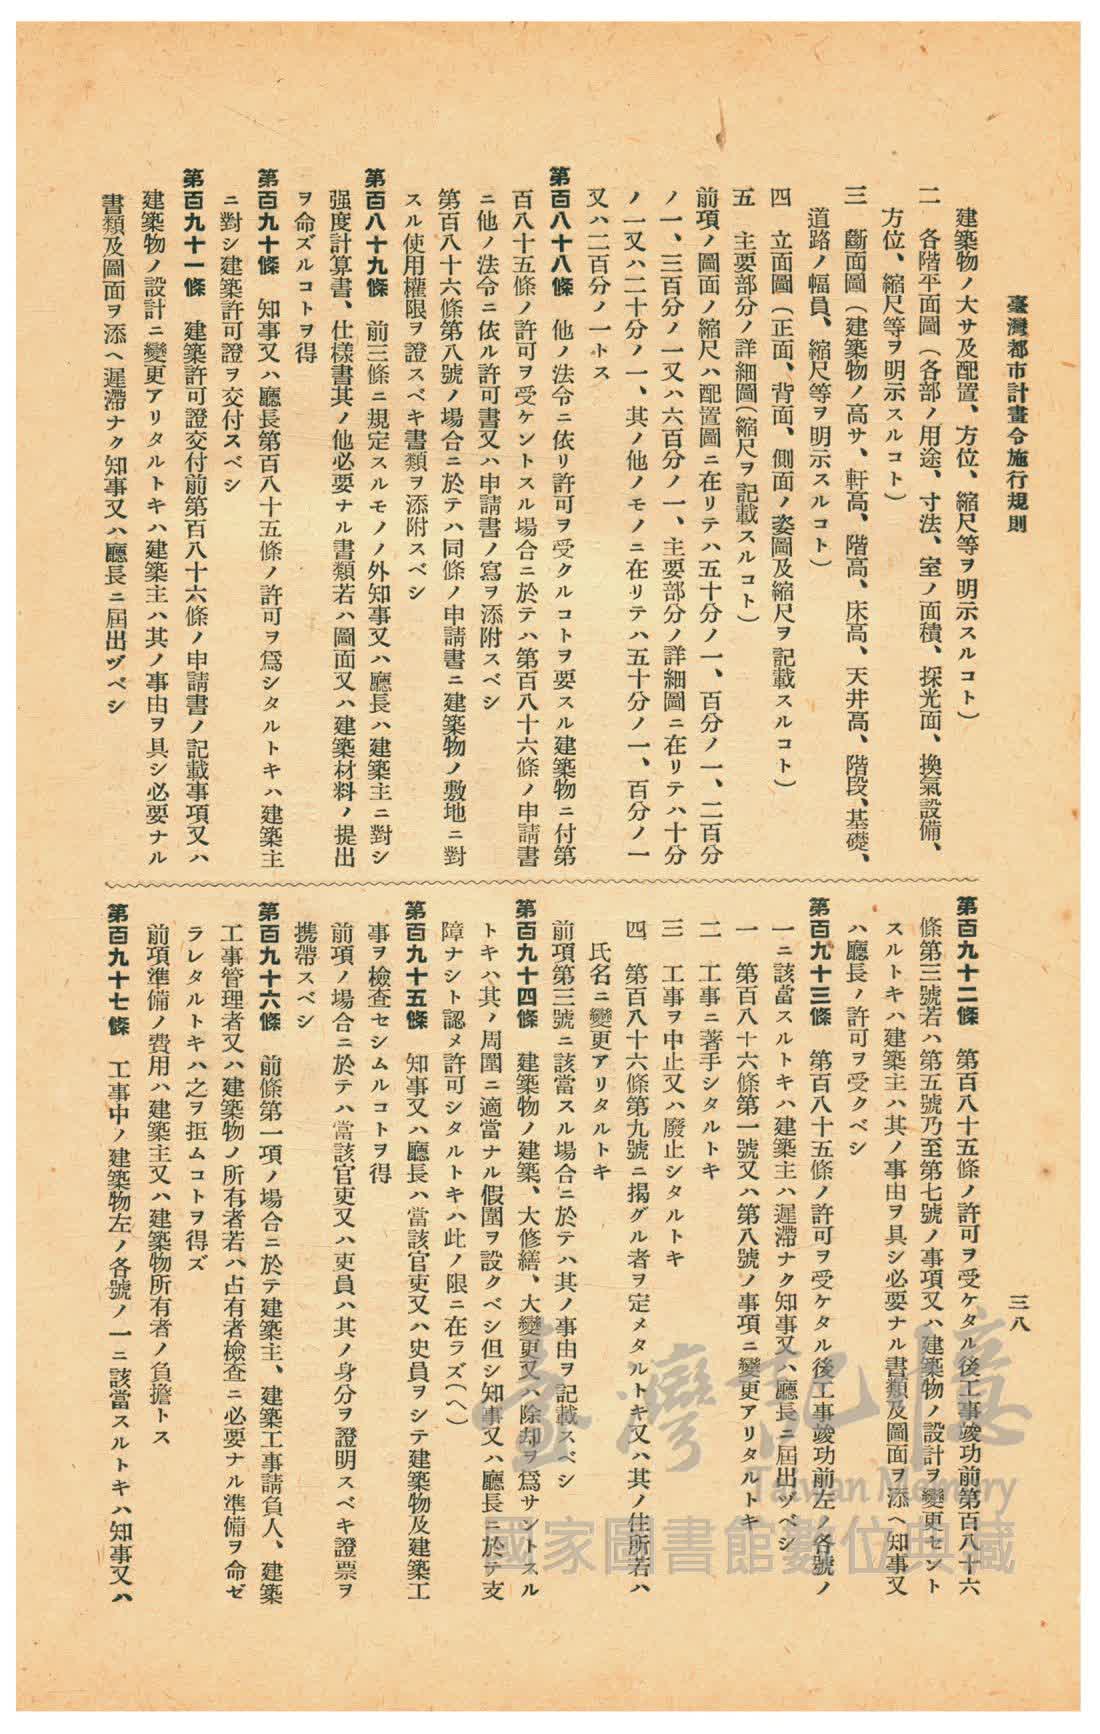 臺灣都市計畫令施行規則
三八
建築物ノ大サ及配置、方位、縮尺等ヲ明示スルコト)
二　各階平面圖(各部ノ用途、寸法、室ノ面積、採光面、換氣設備、
方位、縮尺等ヲ明示スルコト)
三　斷面圖(建築物ノ高サ、軒高、階高、床高、天井高、階段、基礎、
道路ノ幅員、縮尺等ヲ明示スルコト)
四　立面圖(正面、背面、側面ノ姿圖及縮尺ヲ記載スルコト)
五　主要部分ノ詳細圖(縮尺ヲ記載スルコト)
前項ノ圖面ノ縮尺ハ配置圖ニ在リテハ五十分ノ一、百分ノ一、二百分
ノ一、三百分ノ一又ハ六百分ノ一、主要部分ノ詳細圖ニ在リテハ十分
ノ一又ハ二十分ノ一、其ノ他ノモノニ在リテハ五十分ノ一、百分ノ一
又ハ二百分ノ一トス
第百八十八條　他ノ法令ニ依リ許可ヲ受クルコトヲ要スル建築物ニ付第
百八十五條ノ許可ヲ受ケントスル場合ニ於テハ第百八十六條ノ申請書
ニ他ノ法令ニ依ル許可書又ハ申請書ノ寫ヲ添附スベシ
第百八十六條第八號ノ場合ニ於テハ同條ノ申請書ニ建築物ノ敷地ニ對
スル使用權限ヲ證スベキ書類ヲ添附スベシ
第百八十九條　前三條ニ規定スルモノノ外知事又ハ廳長ハ建築主ニ對シ
强度計算書、仕樣書其ノ他必要ナル書類若ハ圖面又ハ建築材料ノ提出
ヲ命ズルコトヲ得
第百九十條　知事又ハ廳長第百八十五條ノ許可ヲ爲シタルトキハ建築主
ニ對シ建築許可證ヲ交付スベシ
第百九十一條　建築許可證交付前第百八十六條ノ申請書ノ記載事項又ハ
建築物ノ設計ニ變更アリタルトキハ建築主ハ其ノ事由ヲ具シ必要ナル
書類及圖面ヲ添ヘ遲滯ナク知事又ハ廳長ニ屆出ヅベシ
第百九十二條　第百八十五條ノ許可ヲ受ケタル後工事竣功前第百八十六
條第三號若ハ第五號乃至第七號ノ事項又ハ建築物ノ設計ヲ變更セント
スルトキハ建築主ハ其ノ事由ヲ具シ必要ナル書類及圖面ヲ添ヘ知事又
ハ廳長ノ許可ヲ受クベシ
第百九十三條　第百八十五條ノ許可ヲ受ケタル後工事竣功前左ノ各號ノ
一ニ該當スルトキハ建築主ハ遲滯ナク知事又ハ廳長ニ屆出ヅベシ
一　第百八十六條第一號又ハ第八號ノ事項ニ變更アリタルトキ
二　工事ニ著手シタルトキ
三　工事ヲ中止又ハ廢止シタルトキ
四　第百八十六條第九號ニ揭グル者ヲ定メタルトキ又ハ其ノ住所若ハ
氏名ニ變更アリタルトキ
前項第三號ニ該當スル場合ニ於テハ其ノ事由ヲ記載スベシ
第百九十四條　建築物ノ建築、大修繕、大變更又ハ除却ヲ爲サントスル
トキハ其ノ周圍ニ適當ナル假圍ヲ設クベシ但シ知事又ハ廳長ニ於テ支
障ナシト認メ許可シタルトキハ此ノ限ニ在ラズ(ヘ)
第百九十五條　知事又ハ廳長ハ當該官吏又ハ吏員ヲシテ建築物及建築工
事ヲ檢查セシムルコトヲ得
前項ノ場合ニ於テハ當該官吏又ハ吏員ハ其ノ身分ヲ證明スベキ證票ヲ
携帶スベシ
第百九十六條　前條第一項ノ場合ニ於テ建築主、建築工事請負人、建築
工事管理者又ハ建築物ノ所有者若ハ占有者檢查ニ必要ナル準備ヲ命ゼ
ラレタルトキハ之ヲ拒ムコトヲ得ズ
前項準備ノ費用ハ建築主又ハ建築物所有者ノ負擔トス
第百九十七條　工事中ノ建築物左ノ各號ノ一ニ該當スルトキハ知事又ハ
臺灣記憶
Taiwan Memory
國家圖書館數位典藏